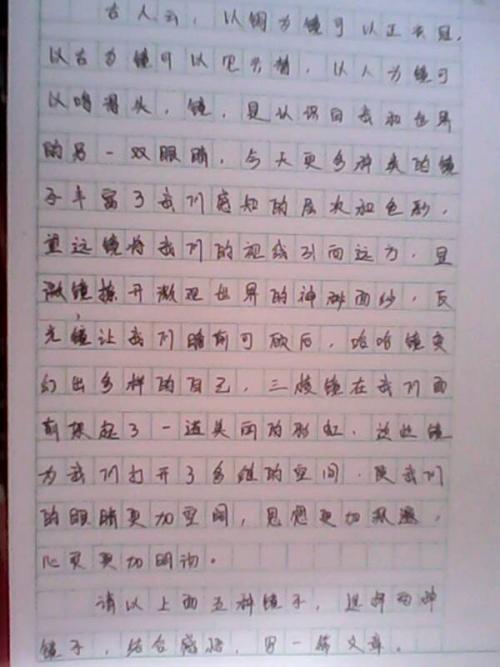 古人云，以铜为镜可以正衣冠，
以古为镜可以见兴替，以人为镜可
以明得失，镜，是认识自我和世界
的另一双眼睛，今天更多种类的镜
子丰富了我们感知的层次和色彩，
望远镜将我们的视线引向远方，显
微镜撩开微观世界的神秘面纱，反
光镜让我们瞻前可顾后，哈哈镜变
幻出多样的自己，三棱镜在我们面
前架起了一道美丽的彩虹，这些镜
为我们打开了多维的空间，使我们
的眼睛更加，思想更加深邃，
心灵更加明。
请以上面五种镜子，选择两种
镜子，结合感悟，写一篇文章。